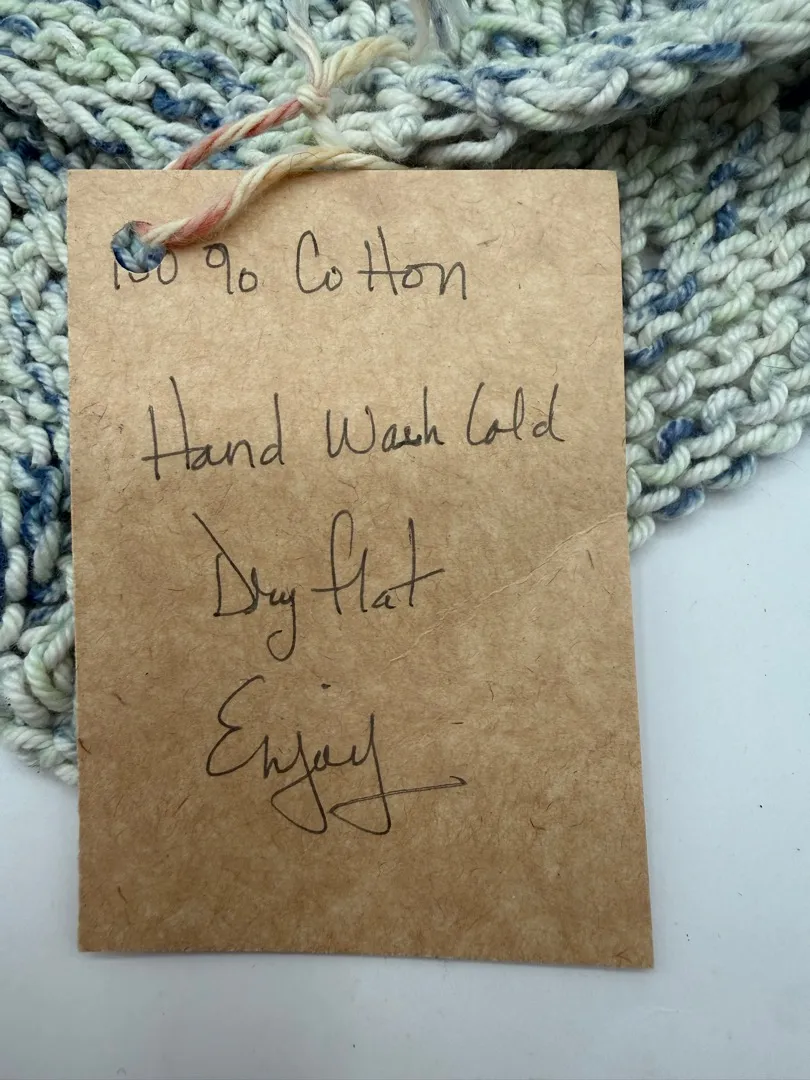 100% Cotton
Hand Wash Cold
Dry flat
Enjoy